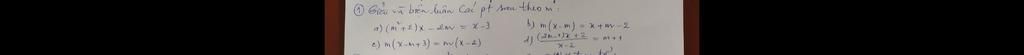 ① Giải và biện luận các pt sau theo m:
a) (m²+2)x - 2m = x - 3 b) m(x-m) = x+m-2
c) m(x-m+3) = m(x-2) d) (2m-1)x+2 / x-2 = m+1